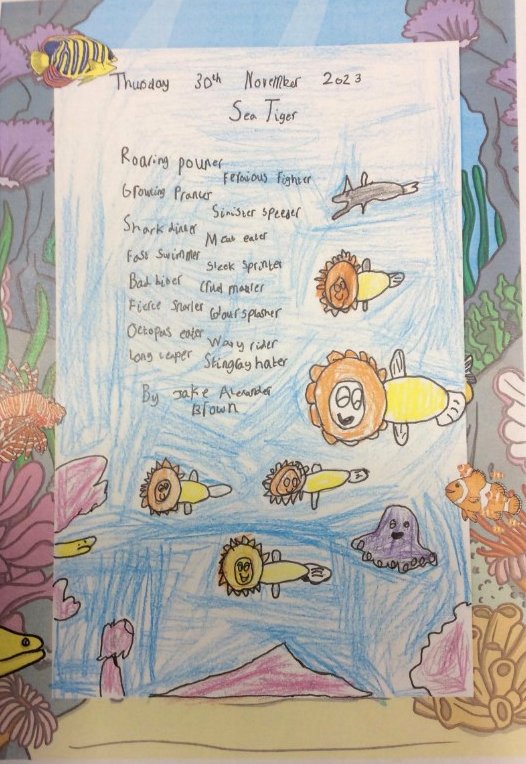 Thusday 30th November 2023
Sea Tiger
Roaring pouner
Feracious Fighter
Growling Prancer
Sinister speeder
Shark diner
Meat eater
Fast Swimmer
Sleek Sprinter
Bad biber
Cruel mauler
Fierce Snarler
Colour splasher
Octopus eater
Wavy rider
Long leaper
Stingray hater
By Jake Alexander
Brown